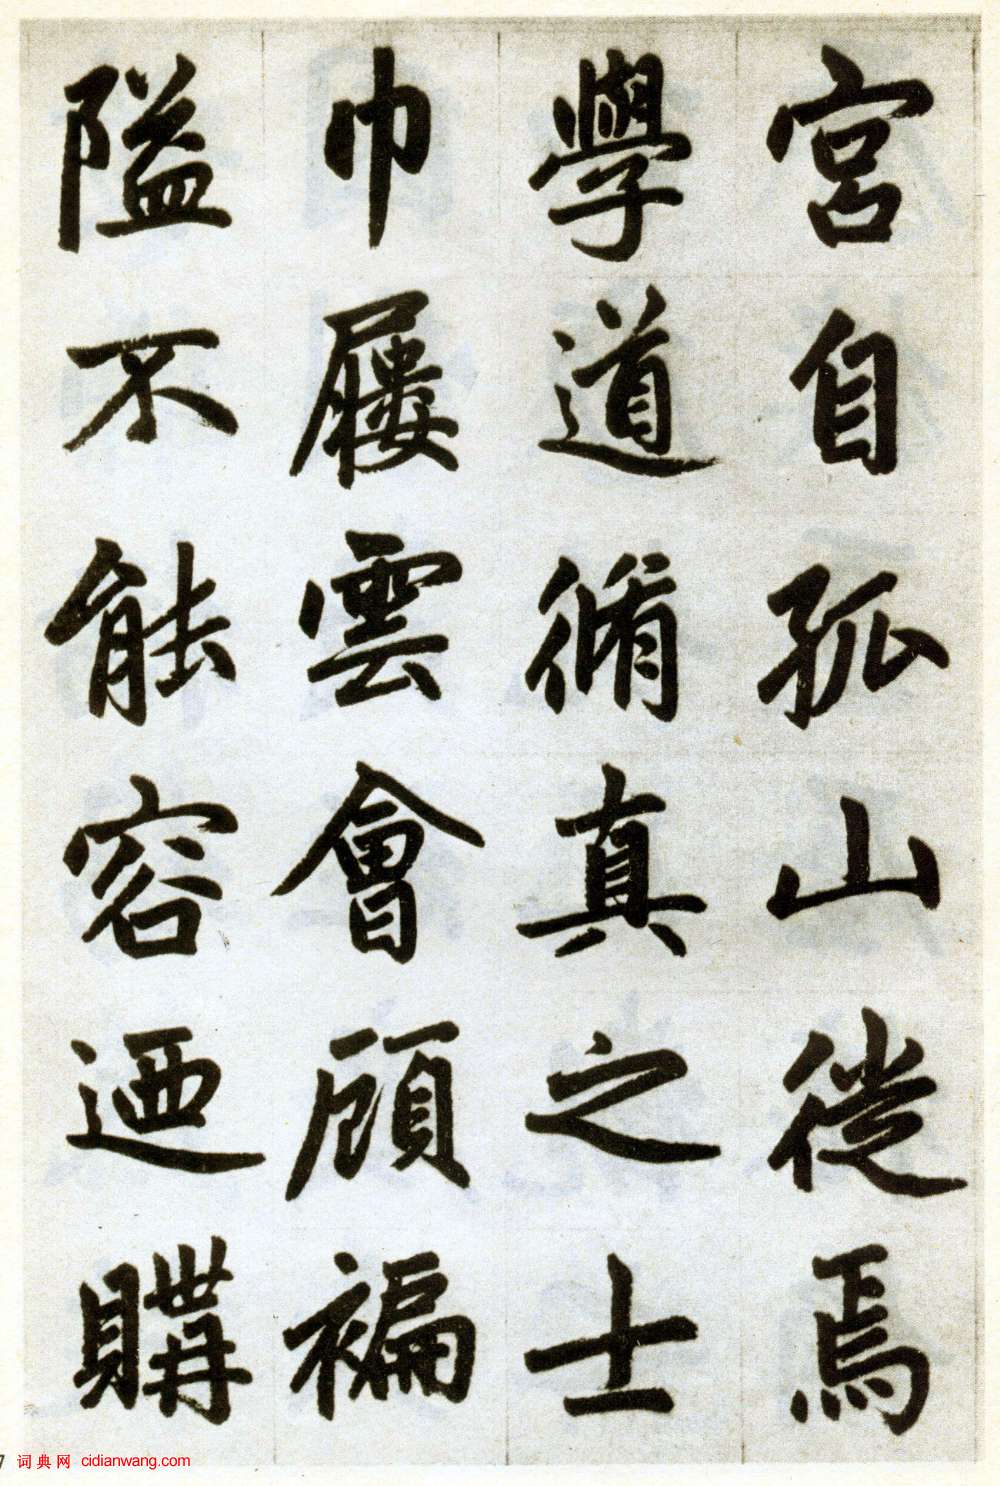 宮自孤山徙焉
學道脩真之士
巾屨雲會顧褊
隘不能容迺購
7 词典网 cidianwang.com